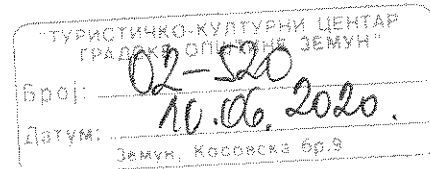 "ТУРИСТИЧКО-КУЛТУРНИ ЦЕНТАР
ГРАДСКЕ ОПШТИНЕ ЗЕМУН"
Број: 02-520
Датум: 10.06.2020.
Земун, Косовска бр.9